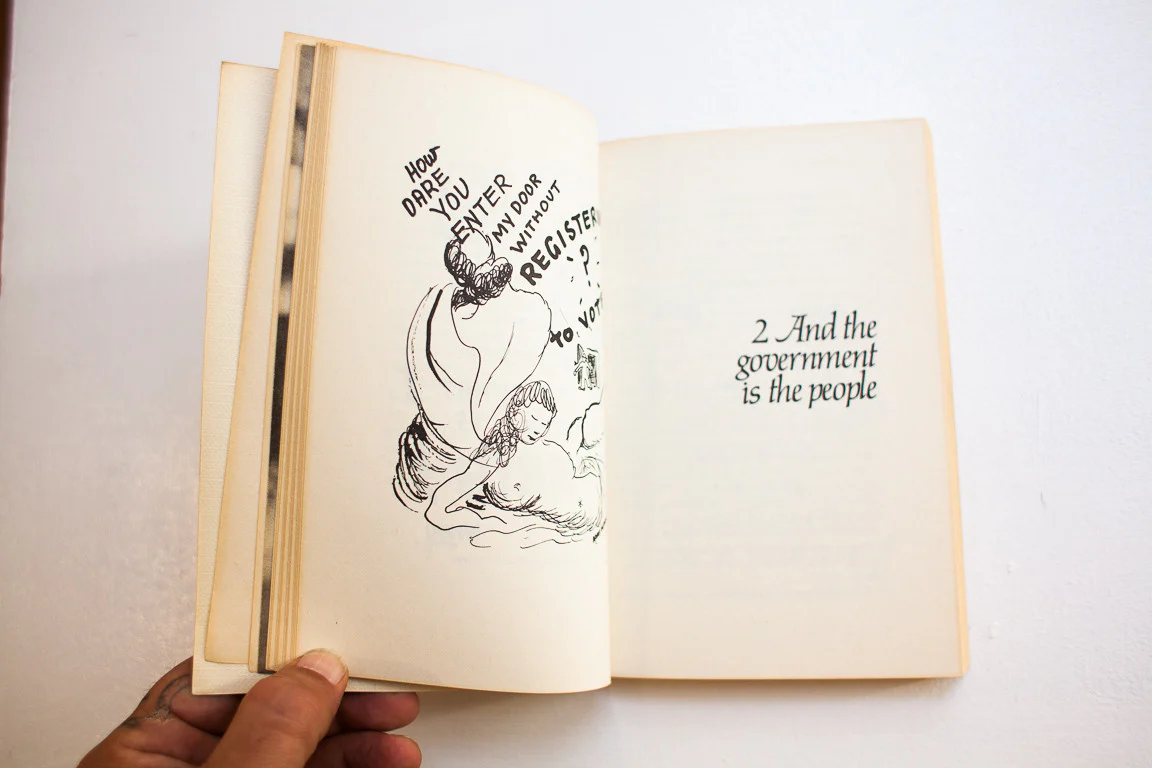 HOW
DARE
YOU
ENTER
MY DOOR
WITHOUT
REGISTER
?
TO VOTE
2 And the
government
is the people